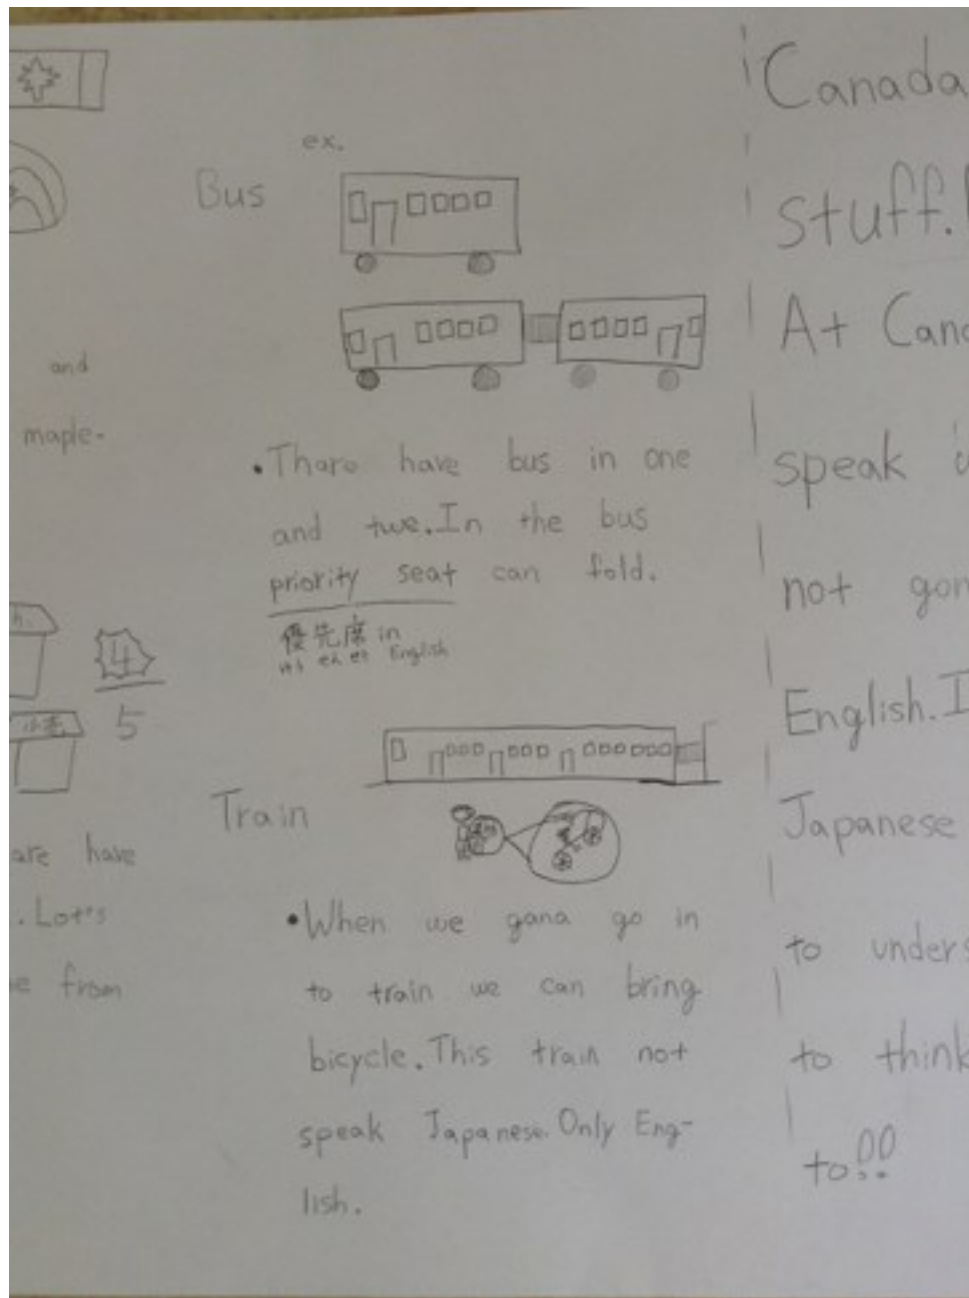 and
maple-
4
5
are have
. Lot's
e from
ex.
Bus
• Thare have bus in one
and twe. In the bus
priority seat can fold.
優先席 in
English
Train
• When we gana go in
to train we can bring
bicycle. This train not
speak Japanese. Only Eng-
lish.
Canada
stuff.
At Cana
speak
not gon
English. I
Japanese
to unders
to think
to!!